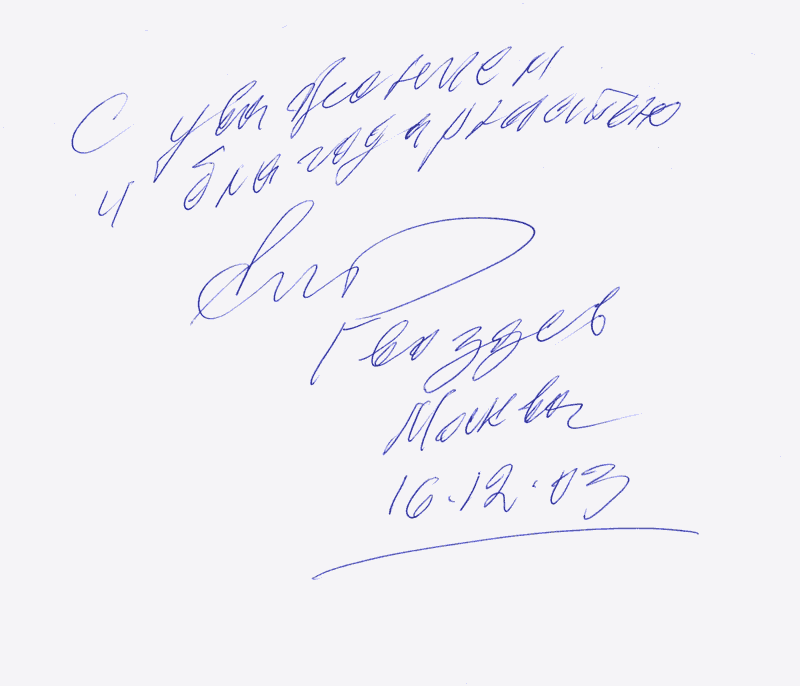 С уважением
и благодарностью
Гвоздев
Москва
16.12.03